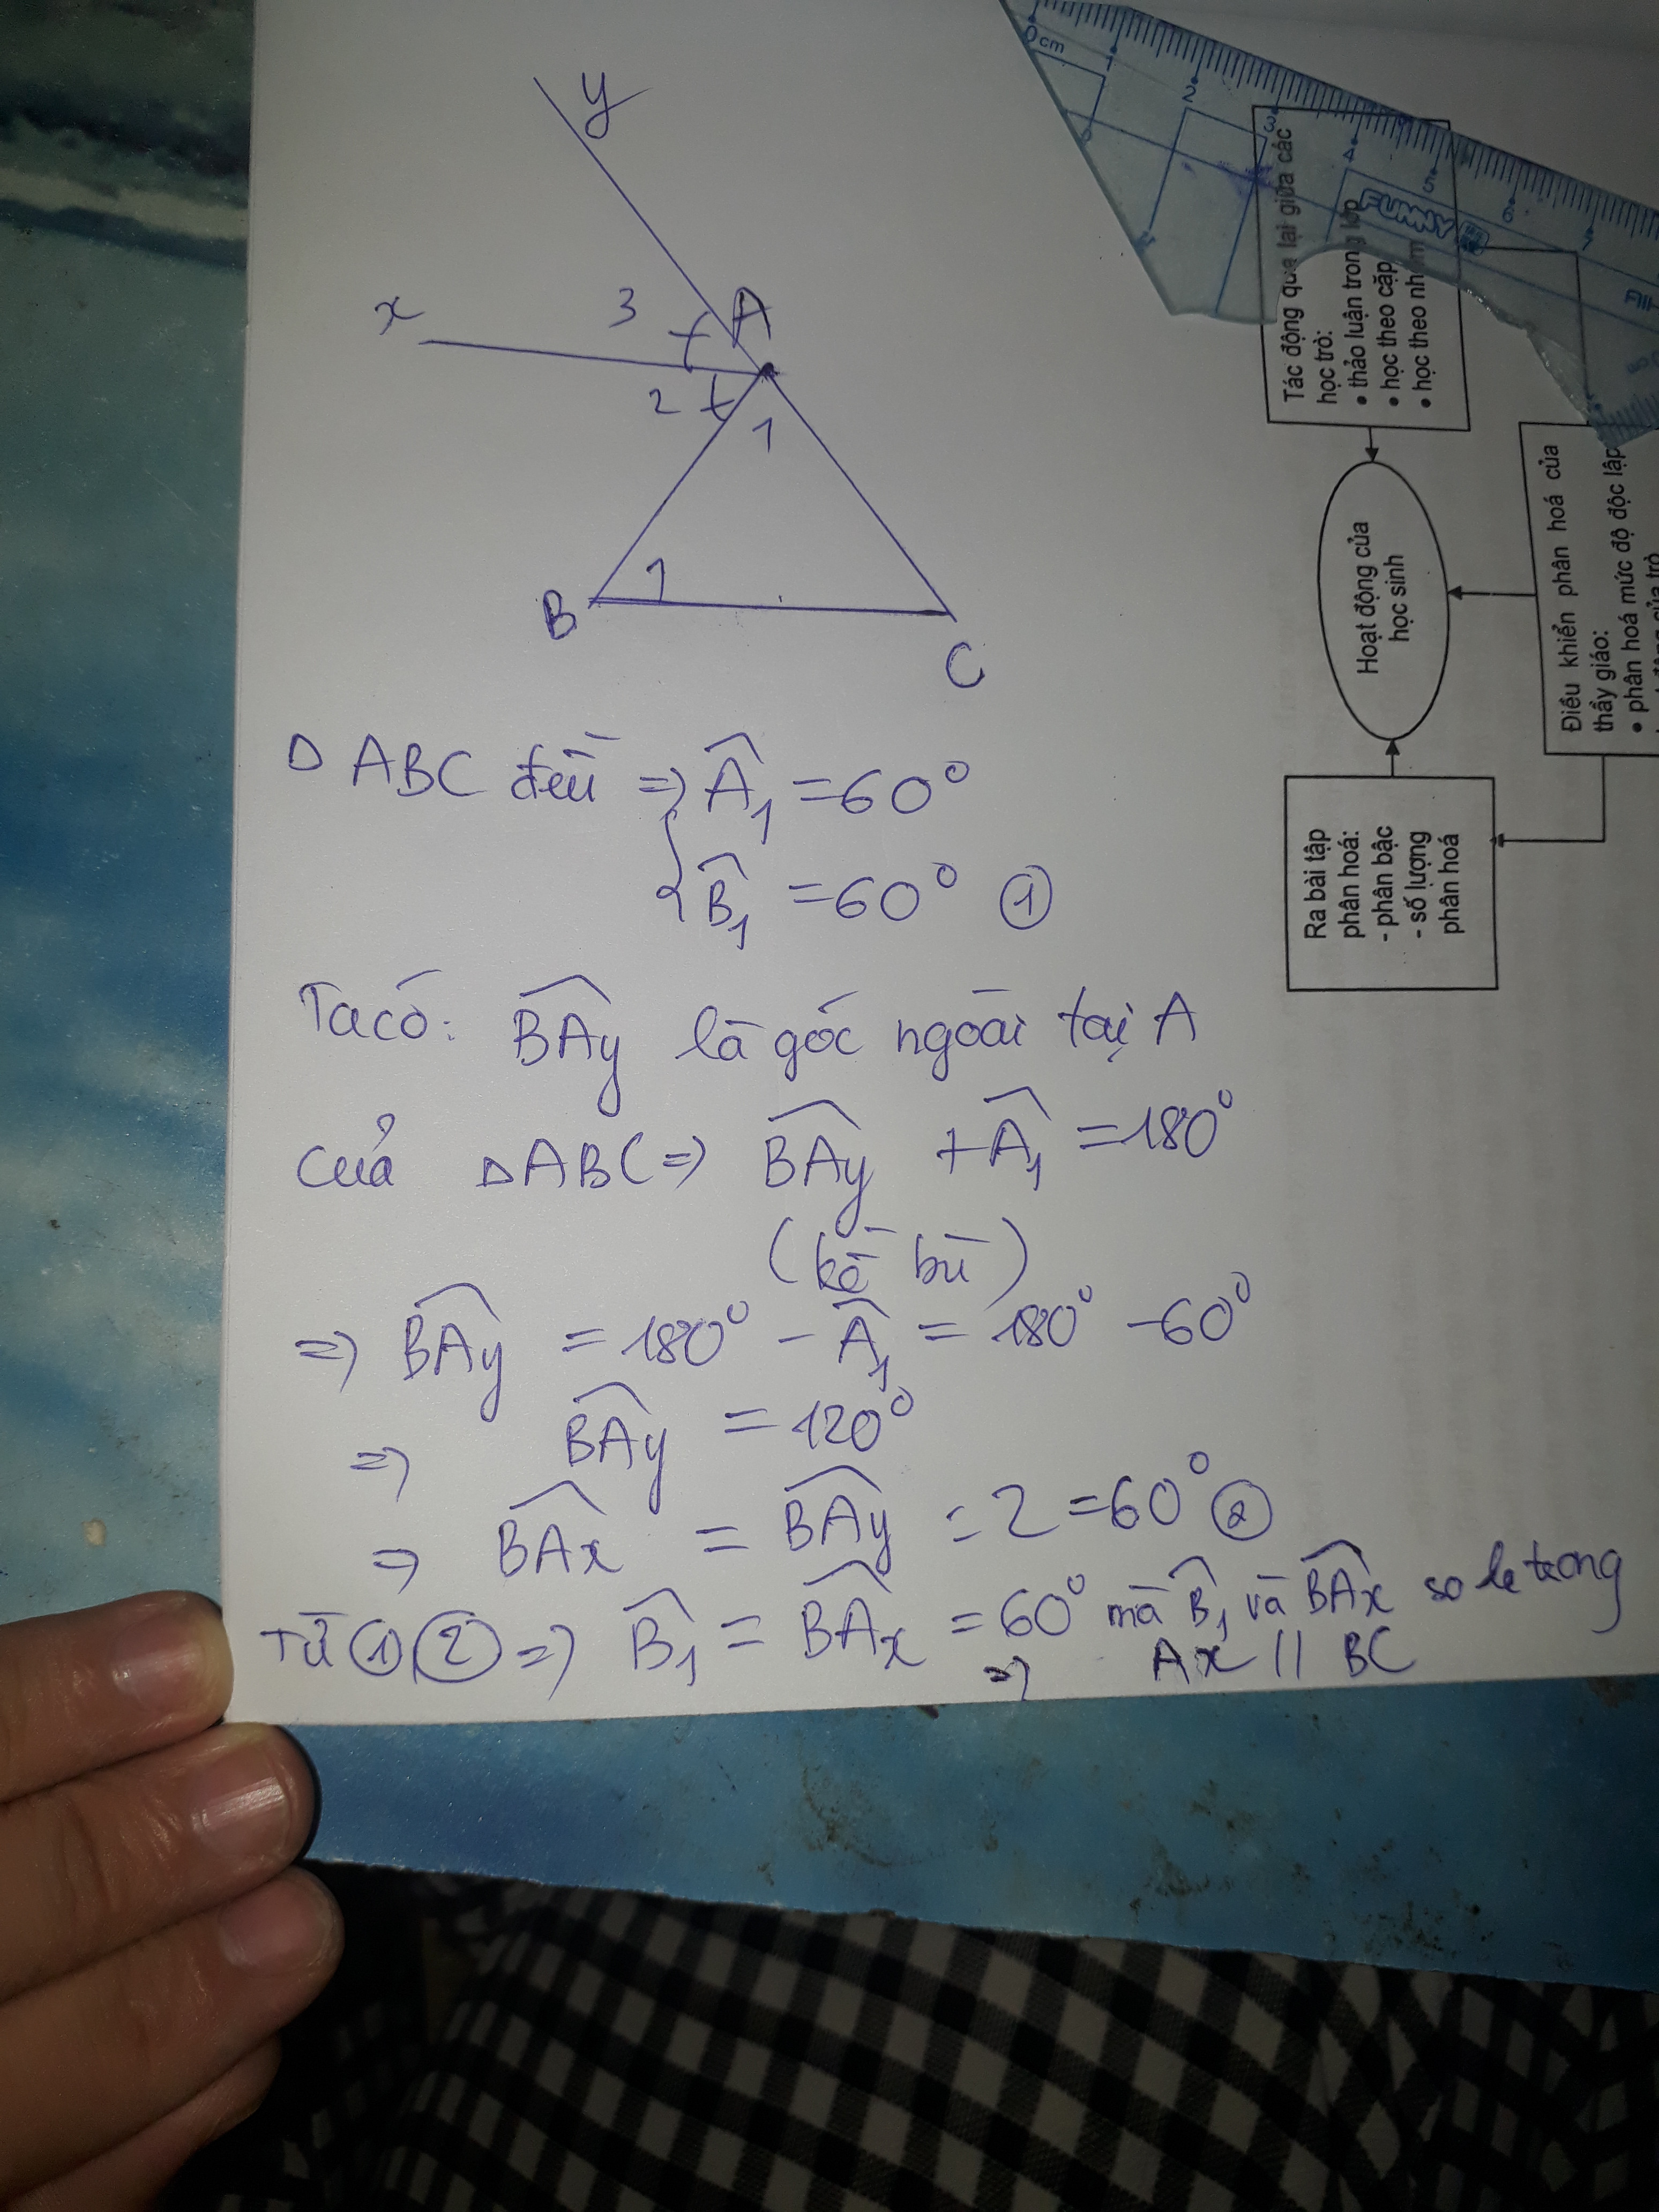 y
x
3
A
2
1
B
1
C
Δ ABC đều => Â₁ = 60°
B̂₁ = 60° ①
Ta có: BAy là góc ngoài tại A
của ΔABC => BAy + Â₁ = 180°
(kề bù)
=> BAy = 180° - Â₁ = 180° - 60°
=> BAy = 120°
=> BAx = BAy = 2 = 60° ②
Từ ① ② => B̂₁ = BAx = 60° mà B̂₁ và BAx so le trong
=> Ax // BC
0 cm
1
2
3
4
5
6
7
FUNNY
Tác động qua lại giữa các
học trò:
• thảo luận trong lớp
• học theo cặp
• học theo nhóm
Hoạt động của
học sinh
Điều khiển phân hoá của
thầy giáo:
• phân hoá mức độ độc lập
của trò
Ra bài tập
phân hoá:
- phân bậc
- số lượng
phân hoá